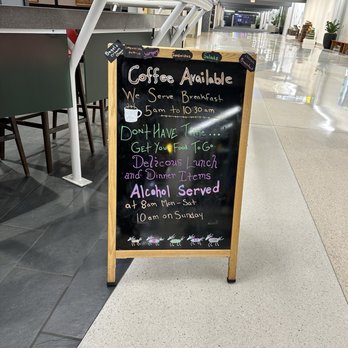 Coffee Available
We Serve Breakfast
5am to 10:30am
Don't Have Time...
Get Your Food To Go
Delicous Lunch
and Dinner Items
Alcohol Served
at 8am Mon-Sat
10am on Sunday